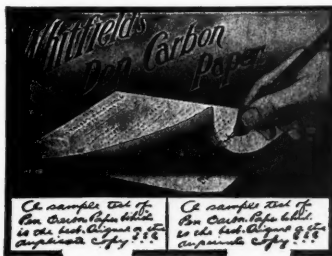 Whitfield's
Pen Carbon
Paper
A sample test of
Pen Carbon Paper Which
is the best. Original or the
duplicate copy ? ? ?
A sample test of
Pen Carbon Paper Which
is the best. Original or the
duplicate copy ? ? ?